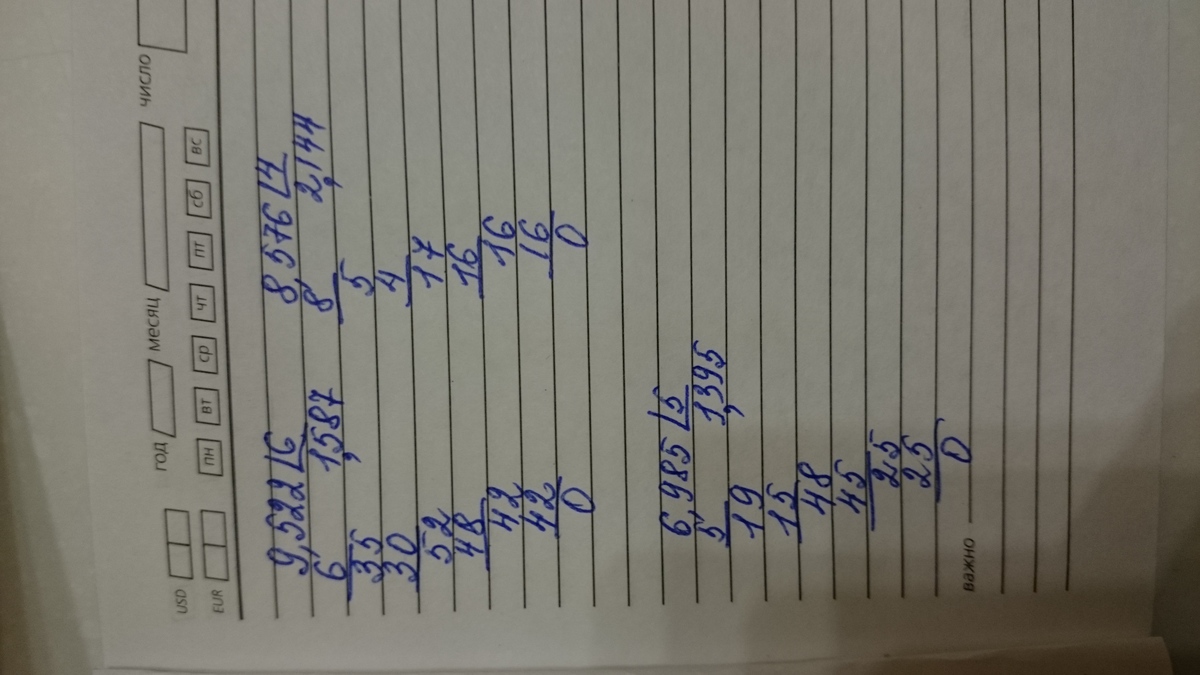 USD год месяц число
EUR пн вт ср чт пт сб вс
9,522 6 8,576 4
6 1,587 8 2,144
35 5
30 4
52 17
48 16
42 16
42 16
0 0
6,985 5
5 1,395
19
15
48
45
25
25
0
важно